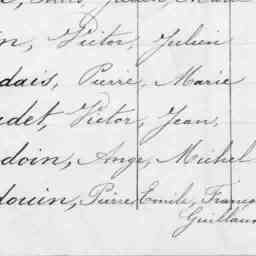 in, Victor, Julien
dais, Pierre, Marie
udet, Victor, Jean,
doin, Ange, Michel
douin, Pierre Emile, Franço
Guillaum